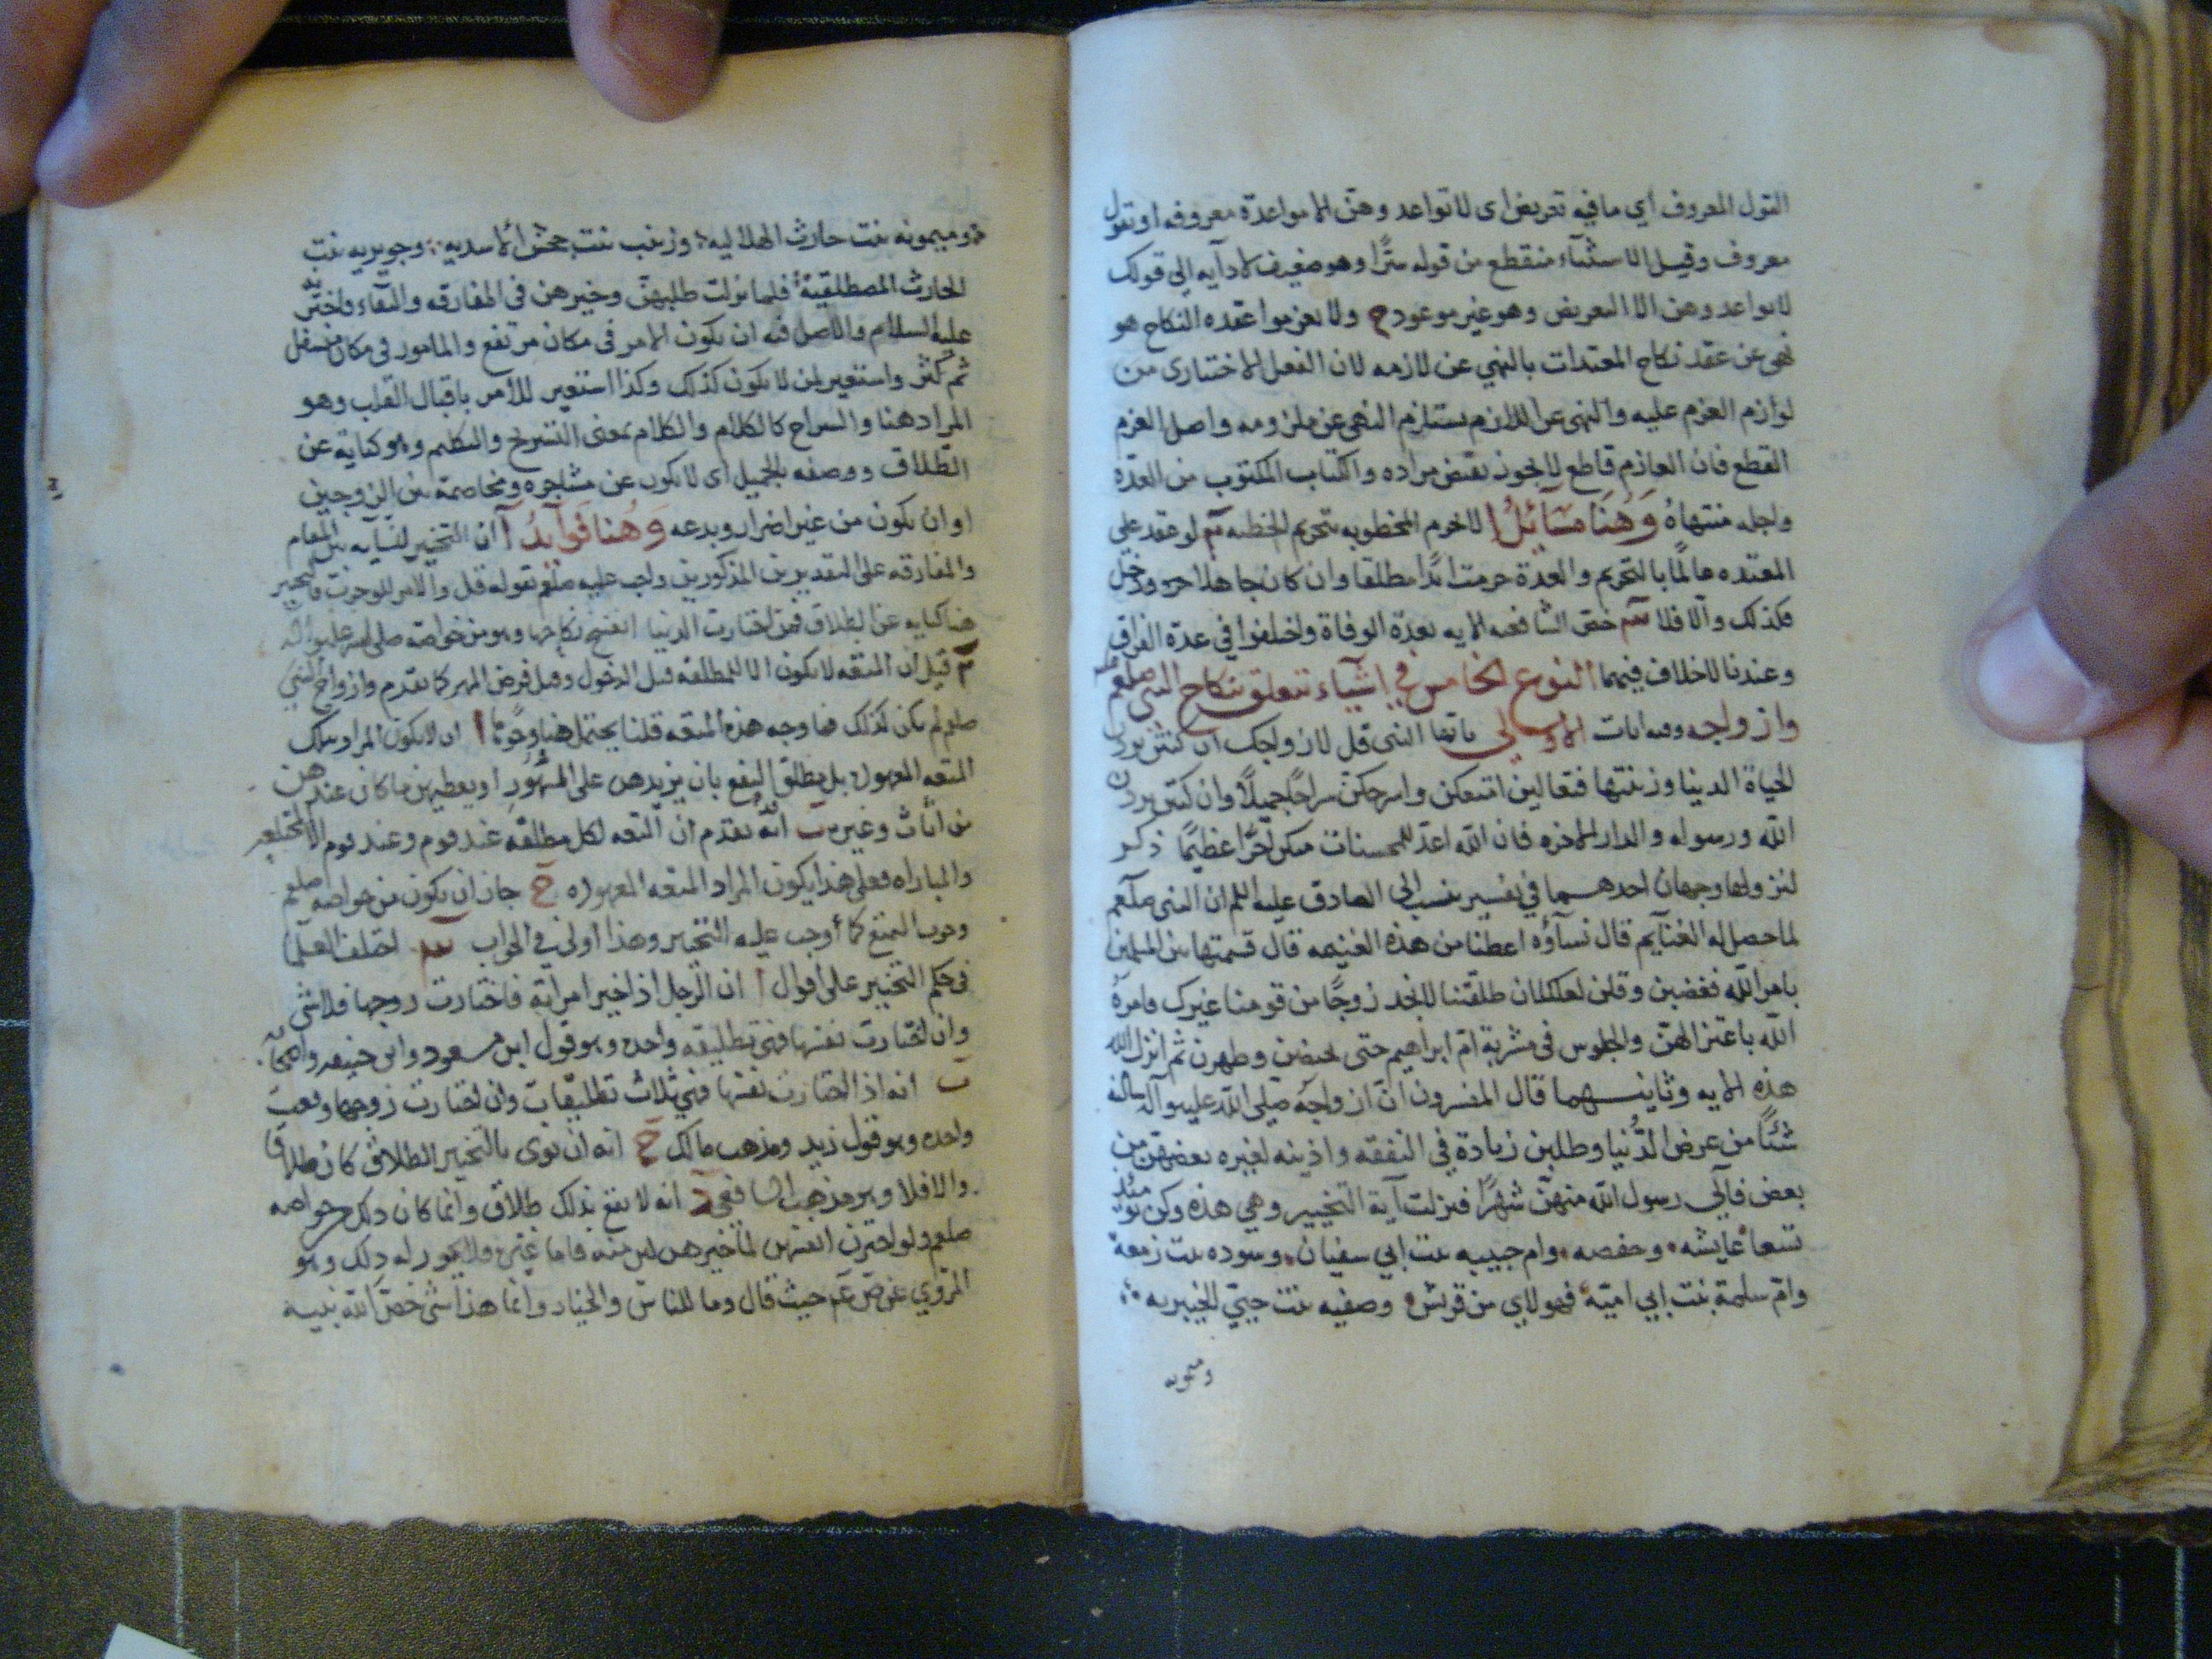 القول المعروف اي ما فيه تعريض اى لا تواعدوهن الا مواعدة معروفه او تقول
معروف وقيل الاستثناء منقطع من قوله سرًّا وهو ضعيف لادايه الى قولك
لا تواعدوهن الا التعريض وهو غير موعود ج ولا تعزموا عقده النكاح هو
نهى عن عقد نكاح المعتدات بالنهي عن لازمه لان الفعل الاختيارى من
لوازم العزم عليه والنهى عن اللازم يستلزم النهى عن ملزومه واصل العزم
القطع فان العازم قاطع لا يجوز نقيض مراده والكتاب المكتوب من العدّة
واجله منتهاهُ وَهُنَا مَسَآئِلُ ا لا تحرم المخطوبه بتحريم الخطبه لو عقد على
المعتده عالمًا بالتحريم والعدة حرمت ابدًا مطلقا وان كان جاهلا حره ودخل
فكذلك والا فلا خص الشافعيه الايه بعدة الوفاة واختلفوا في عدّة الفراق
وعندنا لا خلاف فيهما النوع الخامس في اشيآء تتعلق بنكاح النبى صلعم
وازواجه وفيه ايات الاولى يا ايها النبى قل لازواجك ان كنتن تردن
الحياة الدنيا وزينتها فتعالين امتعكن واسرحكن سراحًا جميلًا وان كنتن تردن
الله ورسوله والدار الاخره فان الله اعدّ للمحسنات منكن اجرًا عظيمًا ذكر
لنزولها وجهان احدهما في تفسير ينسب الى الصادق عليه السلم ان النبى صلعم
لما حصل له الغنآيم قال نسآؤه اعطنا من هذه الغنيمه قال قسمتها بين المسلمين
بامر الله فغضبن وقلن لعلك ان طلقتنا لا نجد زوجًا من قومنا غيرك فامره
الله باعتزالهنّ والجلوس فى مشربة امّ ابراهيم حتى يحضن وطهرن ثم انزل الله
هذه الايه وثانيهما قال المفسرون انّ ازواجه صلى الله عليه وآله سالنه
شئًا من عرض الدُّنيا وطلبن زيادة في النفقه واذينه لغيره بعضهن من
بعض فآلى رسول الله منهنّ شهرًا فنزلت آية التخيير وهي هذه وكن يومئذ
تسعا عايشه وحفصه وام حبيبه بنت ابي سفيان وسوده بنت زمعة
وامّ سلمة بنت ابي اميّه فهولاي من قريش وصفيه بنت حييّ الخيبريه
وميمونه
وميمونه بنت حارث الهلاليه وزينب بنت جحش الاسديه وجويريه بنت
الحارث المصطلقية فلما نزلت طلبهن وخيرهن فى المفارقه والبقاء فاخترنه
عليه السلام والاصل فيه ان يكون الامر فى مكان مرتفع والمامور فى مكان مستفل
ثم كثر واستعير لمن لا يكون كذلك وكذا استعير للامر باقبال القلب وهو
المراد هنا والسراح كالكلام والكلام بمعنى التسريح والتكليم وهو كناية عن
الطلاق ووصفه بالجميل اى لا يكون عن مشاجره ومخاصمة بين الزوجين
او ان يكون من غير اضرار وبدعه وَهُنا فَوآيدُ ا ان التخيير لنسآيه بين المقام
والمفارقه على التقديرين المذكورين واجب عليه صلعم لقوله قل والامر للوجوب والتخيير
هنا كنايه عن الطلاق فمن اختارت الدنيا انفسخ نكاحها وهو من خواصه صلى الله عليه وآله
قيل ان المتعه لا تكون الا للمطلقه قبل الدخول وقبل فرض المهر كما تقدم وازواج النبي
صلعم لم يكن كذلك فما وجه هذه المتعه قلنا يحتمل هنا وجوها ا ان لا يكون المراد بتلك
المتعه المعهوده بل مطلق النفع بان يزيدهن على المهور او يعطيهن ما كان عندهن
من اثاث وغيره ب انّه تقدم ان المتعه لكل مطلقه عند قوم وعند قوم الا المختلعه
والمباراه فعلى هذا يكون المراد المتعه المعهوده ج جاز ان يكون من خواصه صلعم
وجوب التمتع كما أوجب عليه التخيير وهذا أولى في الجواب اختلف العلما
فى حكم التخيير على اقوال ا ان الرجل اذا خير امراته فاختارت زوجها فلا شى
وان اختارت نفسها فهى تطليقه واحده وهو قول ابن مسعود وابى حنيفه واصحابه
ب انه اذا اختارت نفسها فهي ثلاث تطليقات وان اختارت زوجها وقعت
واحده وهو قول زيد ومذهب مالك ج انه ان نوى بالتخيير الطلاق كان طلاقا
والا فلا وهو مذهب الشافعي د انه لا يقع بذلك طلاق وانما كان ذلك من خواصه
صلعم ولو اخترن انفسهن لما خيرهن لبن منه فاما غيره فلا يجوز له ذلك وهو
المروي عن ص عم حيث قال وما للناس والخيار وانما هذا شى خصّ الله نبيه